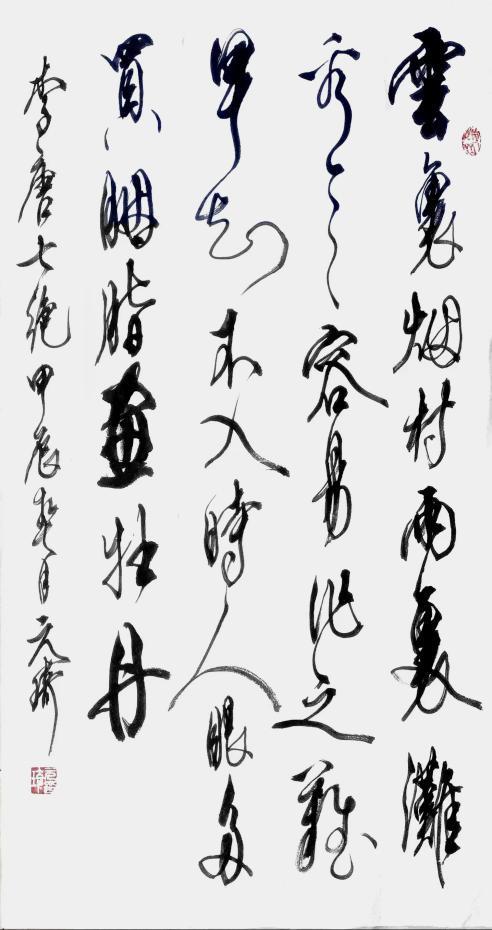 雲裏烟村雨裏灘
看之容易作之難
早知不入時人眼多
買胭脂畫牡丹
李唐七絶甲辰月元